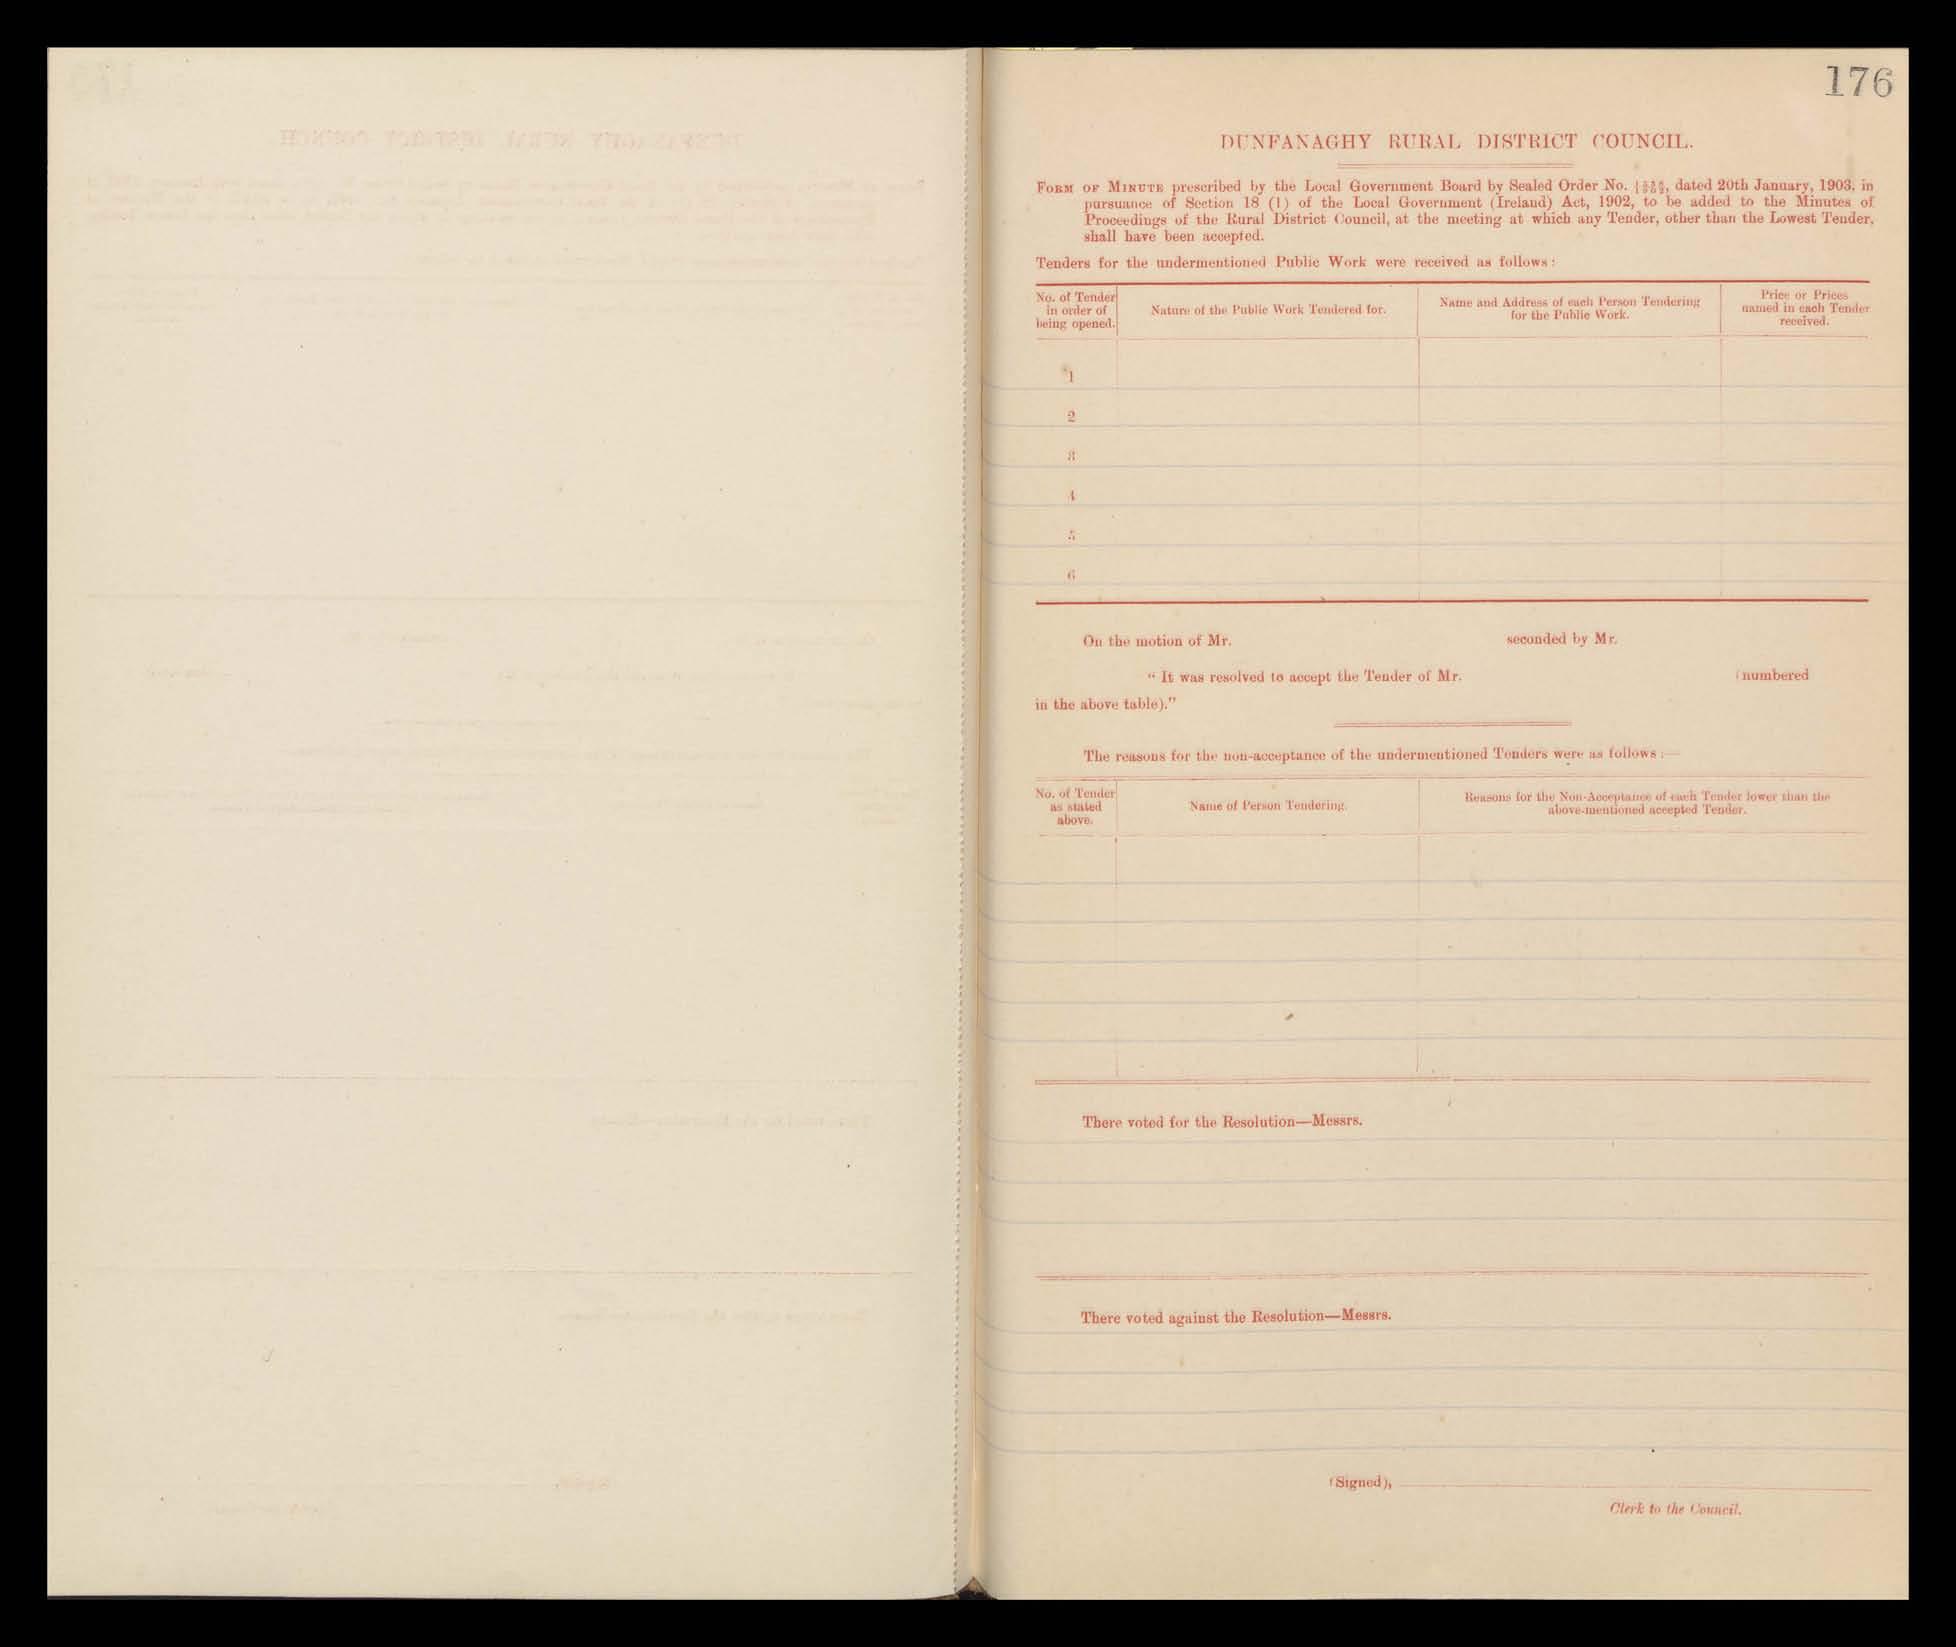 176
DUNFANAGHY RURAL DISTRICT COUNCIL.
FORM OF MINUTE prescribed by the Local Government Board by Sealed Order No. dated 20th January, 1903, in
pursuance of Section 18 (1) of the Local Government (Ireland) Act, 1902, to be added to the Minutes of
Proceedings of the Rural District Council, at the meeting at which any Tender, other than the Lowest Tender,
shall have been accepted.
Tenders for the undermentioned Public Work were received as follows:
No. of Tender
in order of
being opened.
Nature of the Public Work Tendered for.
Name and Address of each Person Tendering
for the Public Work.
Price or Prices
named in each Tender
received.
1
2
3
4
5
6
On the motion of Mr. seconded by Mr.
“ It was resolved to accept the Tender of Mr. (numbered
in the above table).”
The reasons for the non-acceptance of the undermentioned Tenders were as follows :—
No. of Tender
as stated
above.
Name of Person Tendering.
Reasons for the Non-Acceptance of each Tender lower than the
above-mentioned accepted Tender.
There voted for the Resolution—Messrs.
There voted against the Resolution—Messrs.
(Signed),
Clerk to the Council.